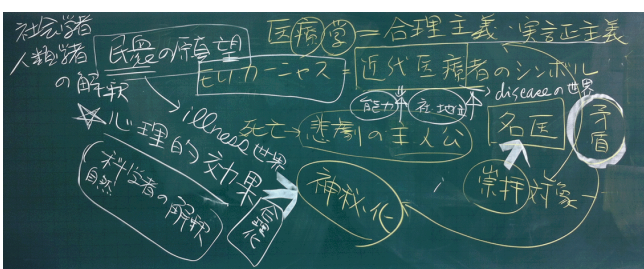 社会学者
人類学者
の解釈
民衆の願望
医療学=合理主義・実証主義
=近代医療者のシンボル
能力 社地
diseaseの世界
illness世界
死亡→悲劇の主人公
名医
矛盾
☆心理的効果
自然科学者の解釈
神秘化
崇拝対象